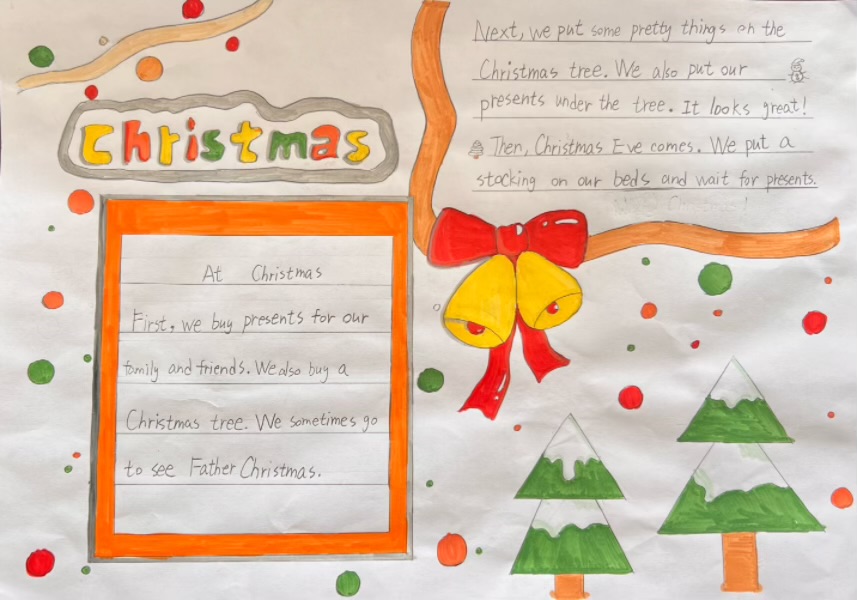 Christmas
At Christmas
First, we buy presents for our
family and friends. We also buy a
Christmas tree. We sometimes go
to see Father Christmas.
Next, we put some pretty things on the
Christmas tree. We also put our
presents under the tree. It looks great!
Then, Christmas Eve comes. We put a
stocking on our beds and wait for presents.